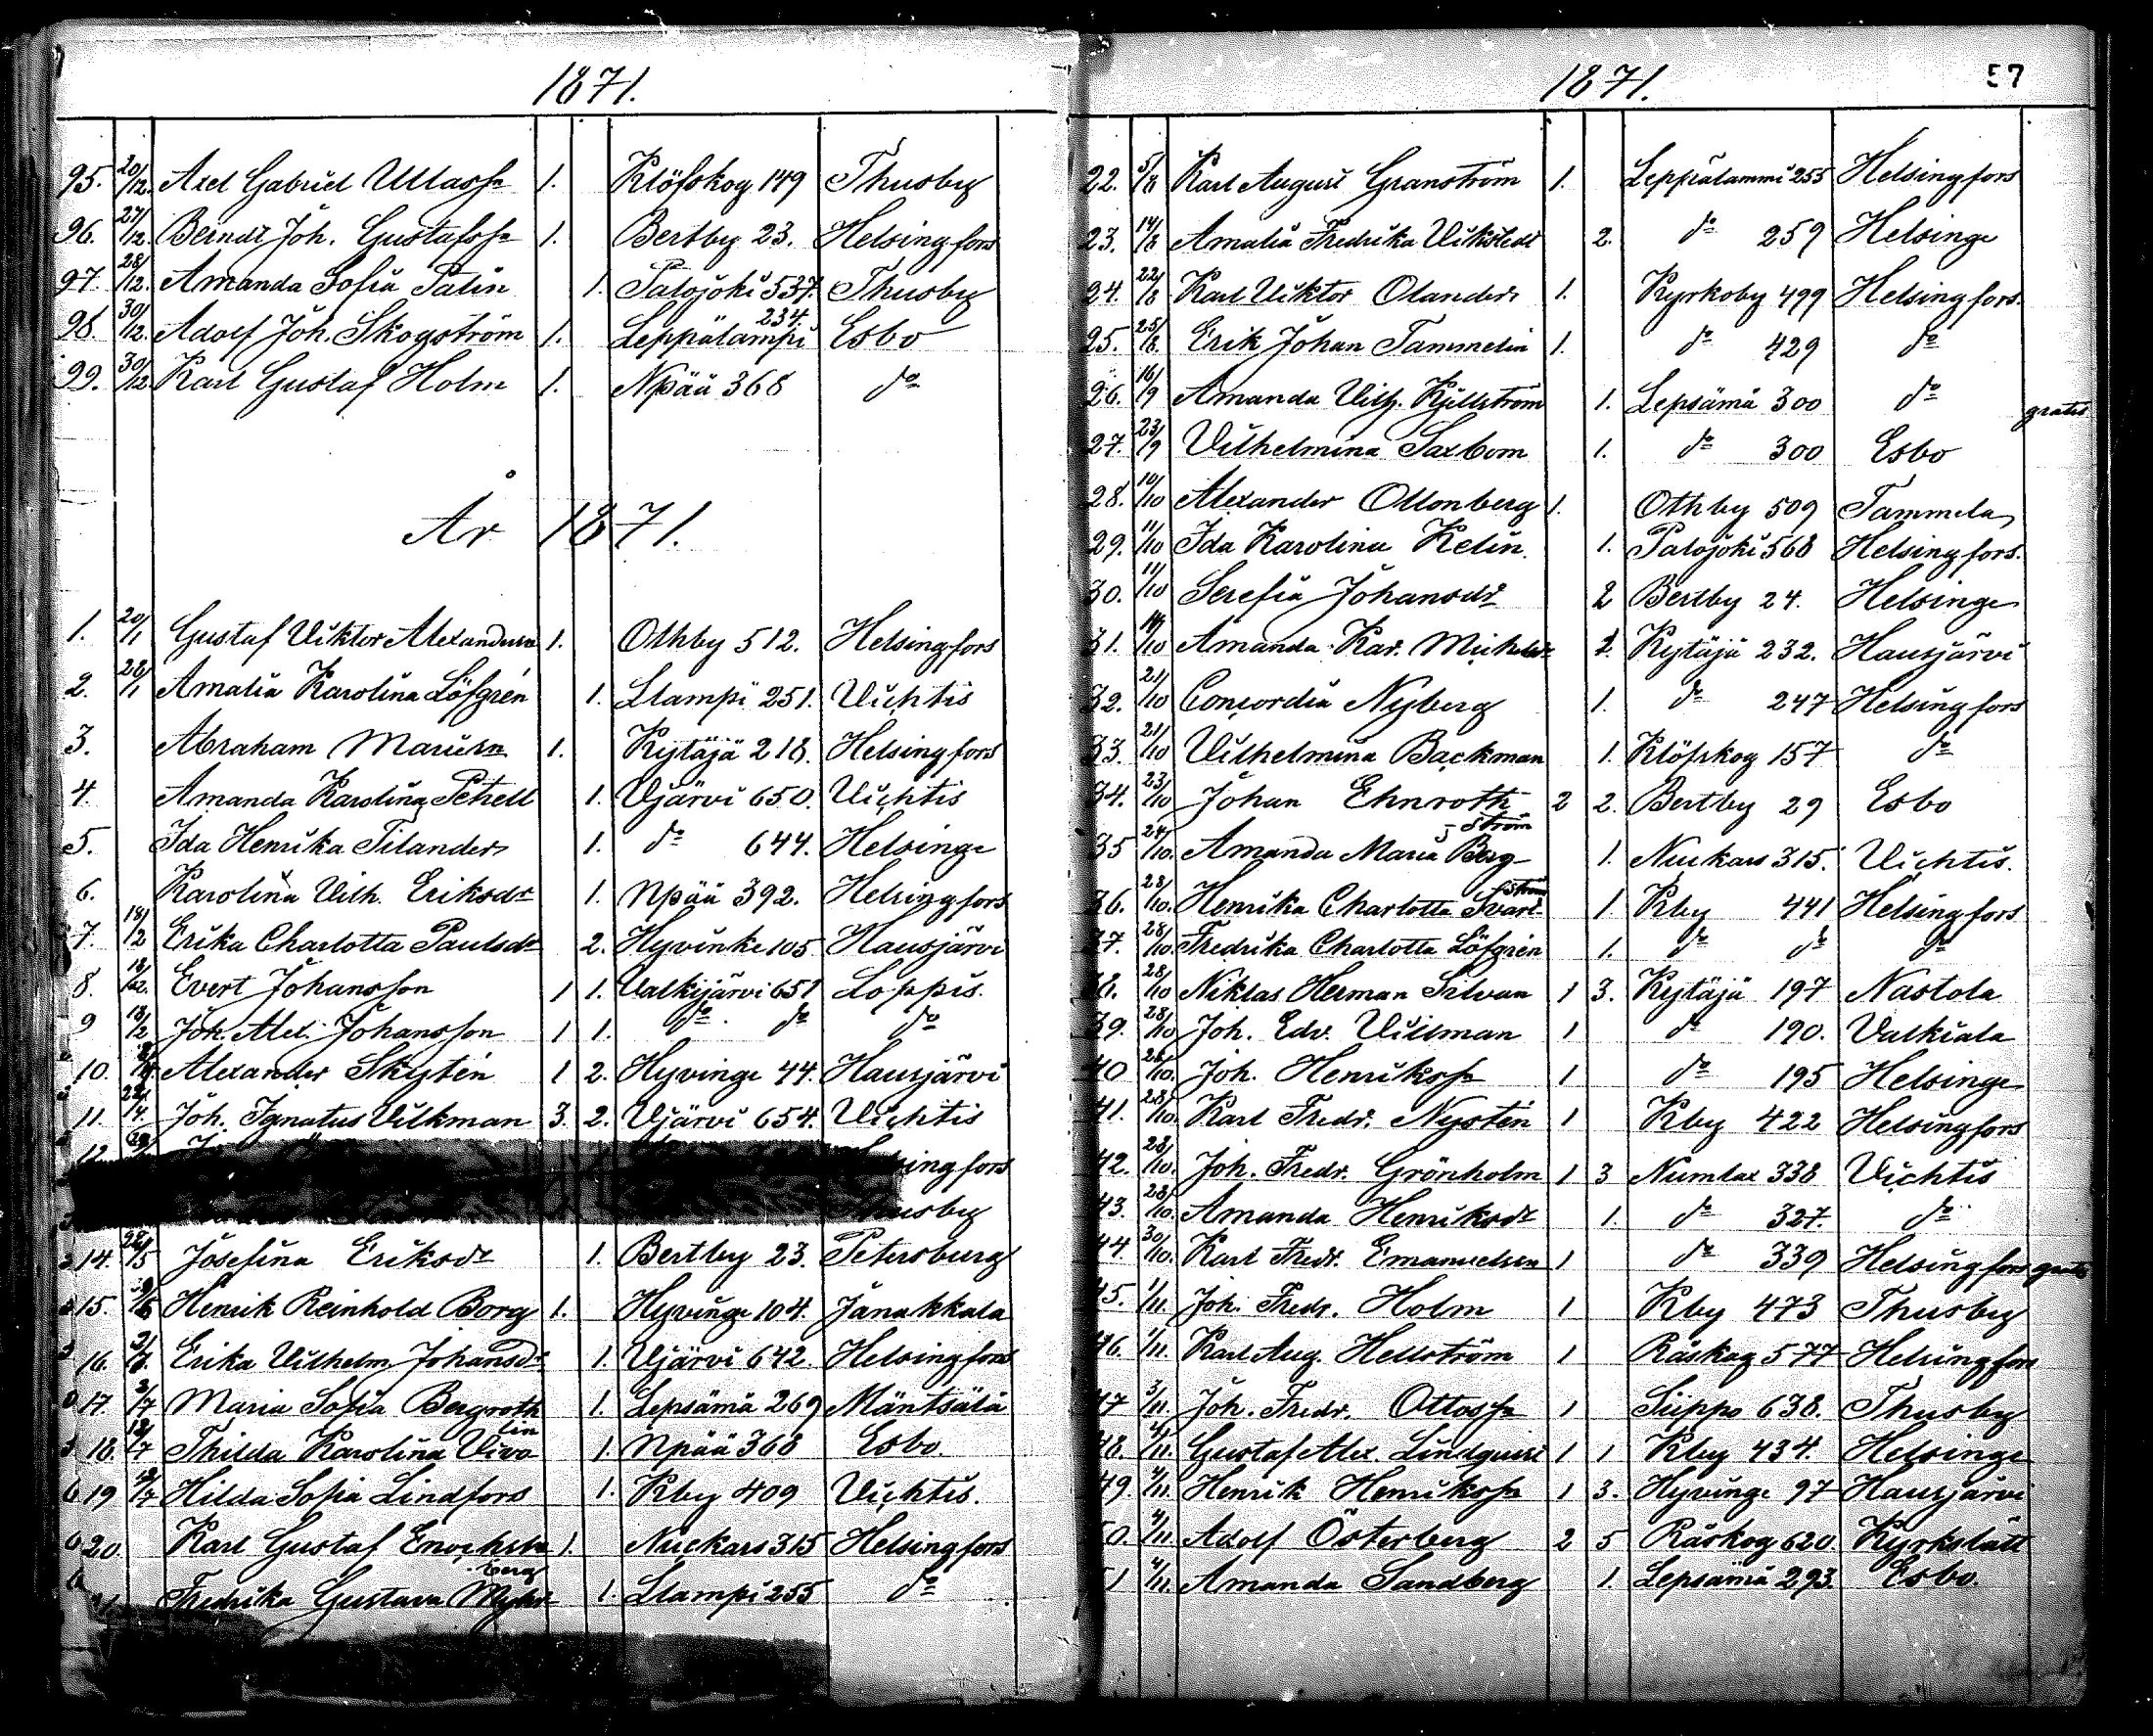 1871.
95. 20/12. Axel Gabriel Ullassn 1. Klöfskog 149 Thusby
96. 27/12. Berndt Joh. Gustafssn 1. Bertby 23. Helsingfors
97. 28/12. Amanda Sofia Palin 1. Palojoki 537. Thusby
98. 30/12. Adolf Joh. Skogström 1. Leppälampi 234. Esbo
99. 30/12. Karl Gustaf Holm 1. Npää 368 do
År 1871.
1. 20/1 Gustaf Viktor Alexandersn 1. Othby 512. Helsingfors
2. 28/1 Amalia Karolina Löfgrén 1. Llampi 251. Vichtis
3. Abraham Mariæsn 1. Kytäjä 218. Helsingfors
4. Amanda Karolina Petrell 1. Vjärvi 650. Vichtis
5. Ida Henrika Tilander 1. do 644. Helsinge
6. Karolina Vilh. Eriksdr 1. Npää 392. Helsingfors
7. 18/2 Erika Charlotta Paulsdr 2. Hyvinke 105 Hausjärvi
8. 18/2. Evert Johansson 1 1. Valkijärvi 651 Loppis.
9 18/2 Joh. Alex. Johansson 1 1. do do do
10. Alexander Skytén 1 2. Hyvinge 44. Hausjärvi
11. 22/4. Joh. Ignatus Vilkman 3. 2. Vjärvi 654. Vichtis
12.
14. /5 Josefina Eriksdr 1. Bertby 23. Petersburg
15. Henrik Reinhold Borg 1. Hyvinge 104. Janakkala
16. Erika Vilhelm. Johansdr 1. Vjärvi 642. Helsingfors
17. 3/7 Maria Sofia Bergroth 1. Lepsämä 269 Mäntsälä
18. 12/7 Thilda Karolina Vivolin 1. Npää 368 Esbo.
19 /7 Hilda Sofia Lindfors 1. Kby 409 Vichtis.
20. Karl Gustaf Enochsn 1. Nuckars 315 Helsingfors
Fredrika Gustava Myhrberg 1. Llampi 255 do
1871. 57
22. 5/8 Karl August Granström 1. Leppälammi 255 Helsingfors
23. 14/8 Amalia Fredrika Vikstedt 2. do 259 Helsinge
24. 22/8 Karl Viktor Olander 1. Kyrkoby 499 Helsingfors.
25. 25/8. Erik Johan Tammelin 1. do 429 do
26. 16/9 Amanda Vilh. Kjellström 1. Lepsämä 300 do gratis
27. 23/9 Vilhelmina Saxbom 1. do 300 Esbo
28. 10/10 Alexander Ollonberg 1. Othby 509 Tammela
29. 11/10 Ida Karolina Kelin. 1. Palojoki 568 Helsingfors.
30. 11/10 Serefia Johansdr 2 Bertby 24. Helsinge
31. 14/10 Amanda Kar. Michelsdr Kytäjä 232. Hausjärvi
32. 21/10 Concordia Nyberg 1. do 247 Helsingfors
33. 21/10 Vilhelmina Backman 1. Klöfskog 157 do
34. 23/10 Johan Ehnroth 2 2. Bertby 29 Esbo
35 24/10. Amanda Maria Bergström 1. Nuckars 315. Vichtis.
36. 28/10. Henrika Charlotta Svartström 1. Kby 441 Helsingfors
37. 28/10. Fredrika Charlotta Löfgrén 1. do do do
38. 28/10 Niklas Herman Silvan 1 3. Kytäjä 197 Nastola
39. 28/10 Joh. Edv. Villman 1 do 190. Valkiala
40 28/10. Joh. Henrikssn 1 do 195 Helsinge
41. 28/10. Karl Fredr. Nystén 1 Kby 422 Helsingfors
42. 28/10. Joh. Fredr. Grönholm 1 3 Numlax 338 Vichtis
43. 28/10. Amanda Henriksdr 1. do 327. do
44. 30/10. Karl Fredr. Emanuelsn 1 do 339 Helsingfors gratis
45. 1/11. Joh. Fredr. Holm 1 Kby 473 Thusby
46. 1/11. Karl Aug. Hellström 1 Råskog 577 Helsingfors
47 3/11. Joh. Fredr. Ottossn 1 Siippo 638. Thusby
48. 4/11. Gustaf Alex. Lindquist 1 1 Kby 434. Helsinge
49. 4/11. Henrik Henrikssn 1 3. Hyvinge 97 Hausjärvi
50. 4/11. Adolf Österberg 2 5 Råskog 620. Kyrkslätt
51 4/11. Amanda Sandberg 1. Lepsämä 293. Esbo.